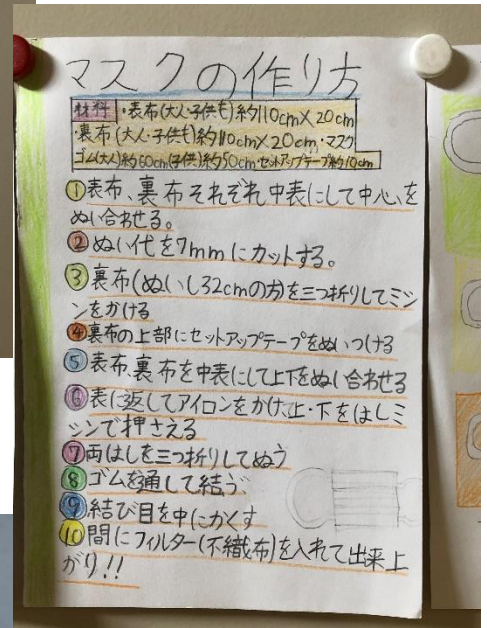 マスクの作り方
材料・表布(大人・子供も)約110cm×20cm
・裏布(大人・子供も)約110cm×20cm・マスク
ゴム(大人)約60cm(子供)約50cm・セットアップテープ約10cm
①表布、裏布それぞれ中表にして中心を
ぬい合わせる。
②ぬい代を7mmにカットする。
③裏布(ぬいしろ2cmの方)を三つ折りしてミシ
ンをかける
④裏布の上部にセットアップテープをぬいつける
⑤表布、裏布を中表にして上下をぬい合わせる
⑥表に返してアイロンをかけ、上・下をはしミ
シンで押さえる
⑦両はしを三つ折りしてぬう
⑧ゴムを通して結ぶ
⑨結び目を中にかくす
⑩間にフィルター(不織布)を入れて出来上
がり!!